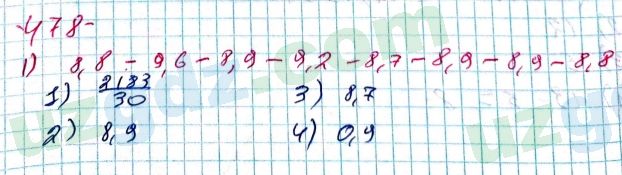 -478-
1) 8,8 - 9,6 - 8,9 - 9,2 - 8,7 - 8,9 - 8,9 - 8,8
1) 2183/30 3) 8,7
2) 8,9 4) 0,9